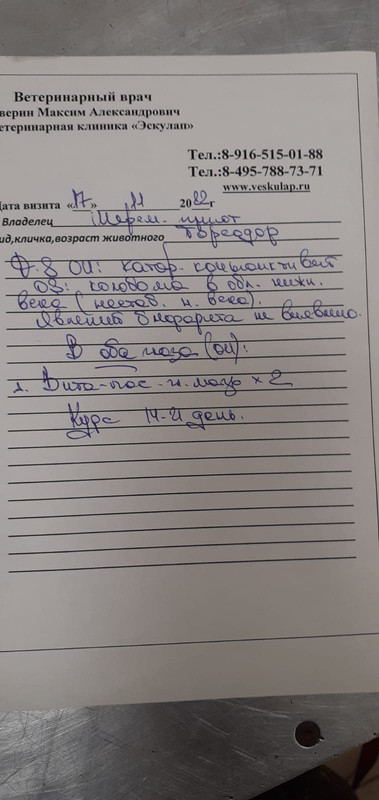 Ветеринарный врач
верин Максим Александрович
етеринарная клиника «Эскулап»
Тел.:8-916-515-01-88
Тел.:8-495-788-73-71
www.veskulap.ru
Дата визита «17» 11 2022г
Владелец приют
ид,кличка,возраст животного Тореадор
Д-з OU: катар. конъюнктивит
OS: колобома в обл. нижн.
века (нестаб. н. века).
Явлений блефарита не выявлено.
В оба глаза (OU):
1. Вита-пос - н. мазь × 2
Курс 14-21 день.